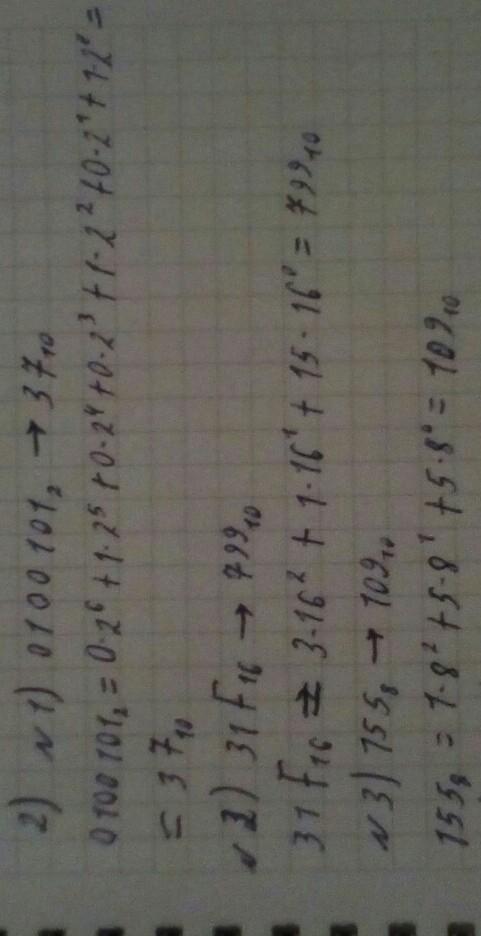 2) №1) 0100101₂ → 37₁₀
0100101₂ = 0·2⁶ + 1·2⁵ + 0·2⁴ + 0·2³ + 1·2² + 0·2¹ + 1·2⁰ =
= 37₁₀
№2) 31F₁₆ → 799₁₀
31F₁₆ = 3·16² + 1·16¹ + 15·16⁰ = 799₁₀
№3) 155₈ → 109₁₀
155₈ = 1·8² + 5·8¹ + 5·8⁰ = 109₁₀